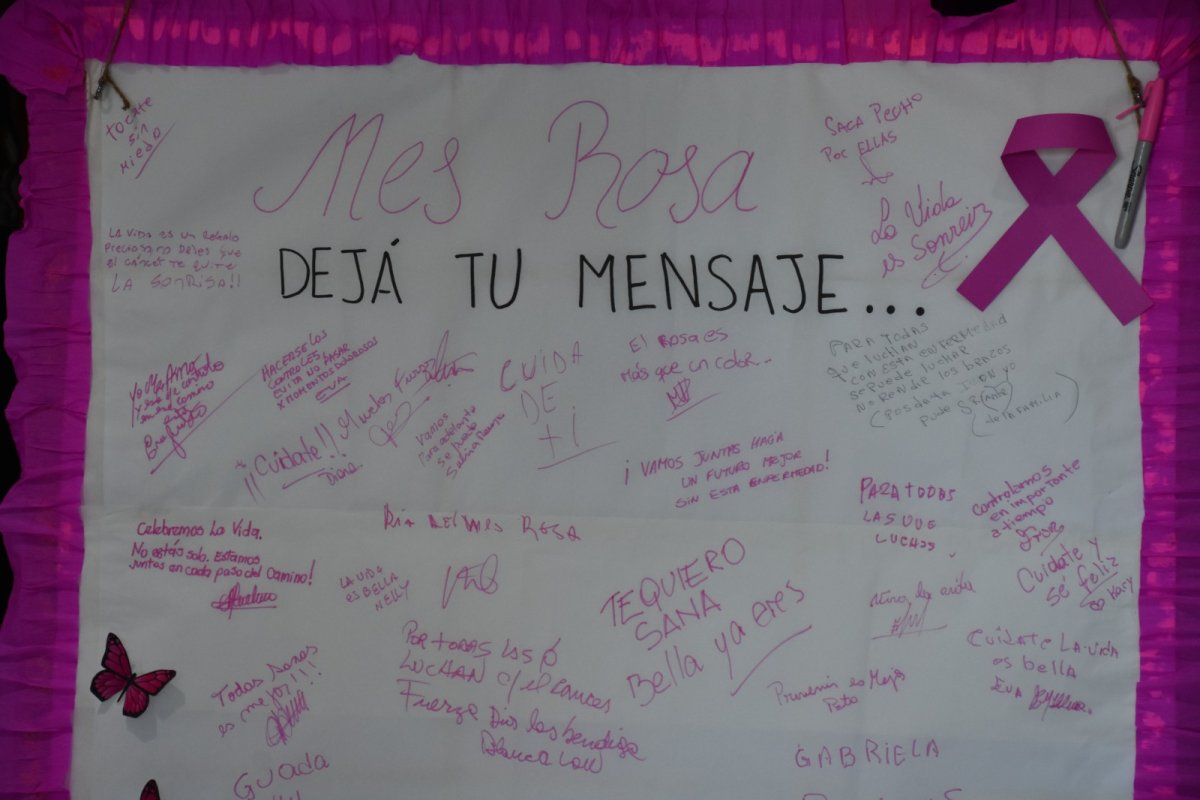 Mes Rosa
DEJÁ TU MENSAJE...
tocate
sin
miedo
SACA PECHO
POR ELLAS
La Vida
es Sonreir
Sharpie
LA VIDA ES UN REGALO
PRECIOSO NO DEJES QUE
EL CÁNCER TE QUITE
LA SONRISA!!
Yo Me Amo
HACERSE LOS
CONTROLES
EVITA NO PASAR
X MOMENTOS DOLOROSOS
EVA
¡¡Cuidate!!
Diana.
Vamos
Para adelante
se puede
CUIDA
DE
+ i
El Rosa es
Más que un color...
PARA TODAS
que luchan
con esta enfermedad
se puede luchar
No Rendir los brazos
de la familia
¡VAMOS JUNTAS HACIA
UN FUTURO MEJOR
SIN ESTA ENFERMEDAD!
PARA TODAS
LAS QUE
LUCHAS
Controlarnos
en importante
a tiempo
FLOR
Celebremos La Vida.
No estás sola. Estamos
juntas en cada paso del camino!
Dia del mes Rosa
LA VIDA
es BELLA
NELLY
TE QUIERO
SANA
Bella ya eres
la vida
Cuidate y
sé feliz
Cuidate La vida
es bella
Eva
Todas Sanas
es mejor!!!
POR TODAS LAS Q
LUCHAN c/ el cancer
Fuerza Dios las bendiga
Blanca
Prevenir es Mejor
Pato
GUADA
GABRIELA